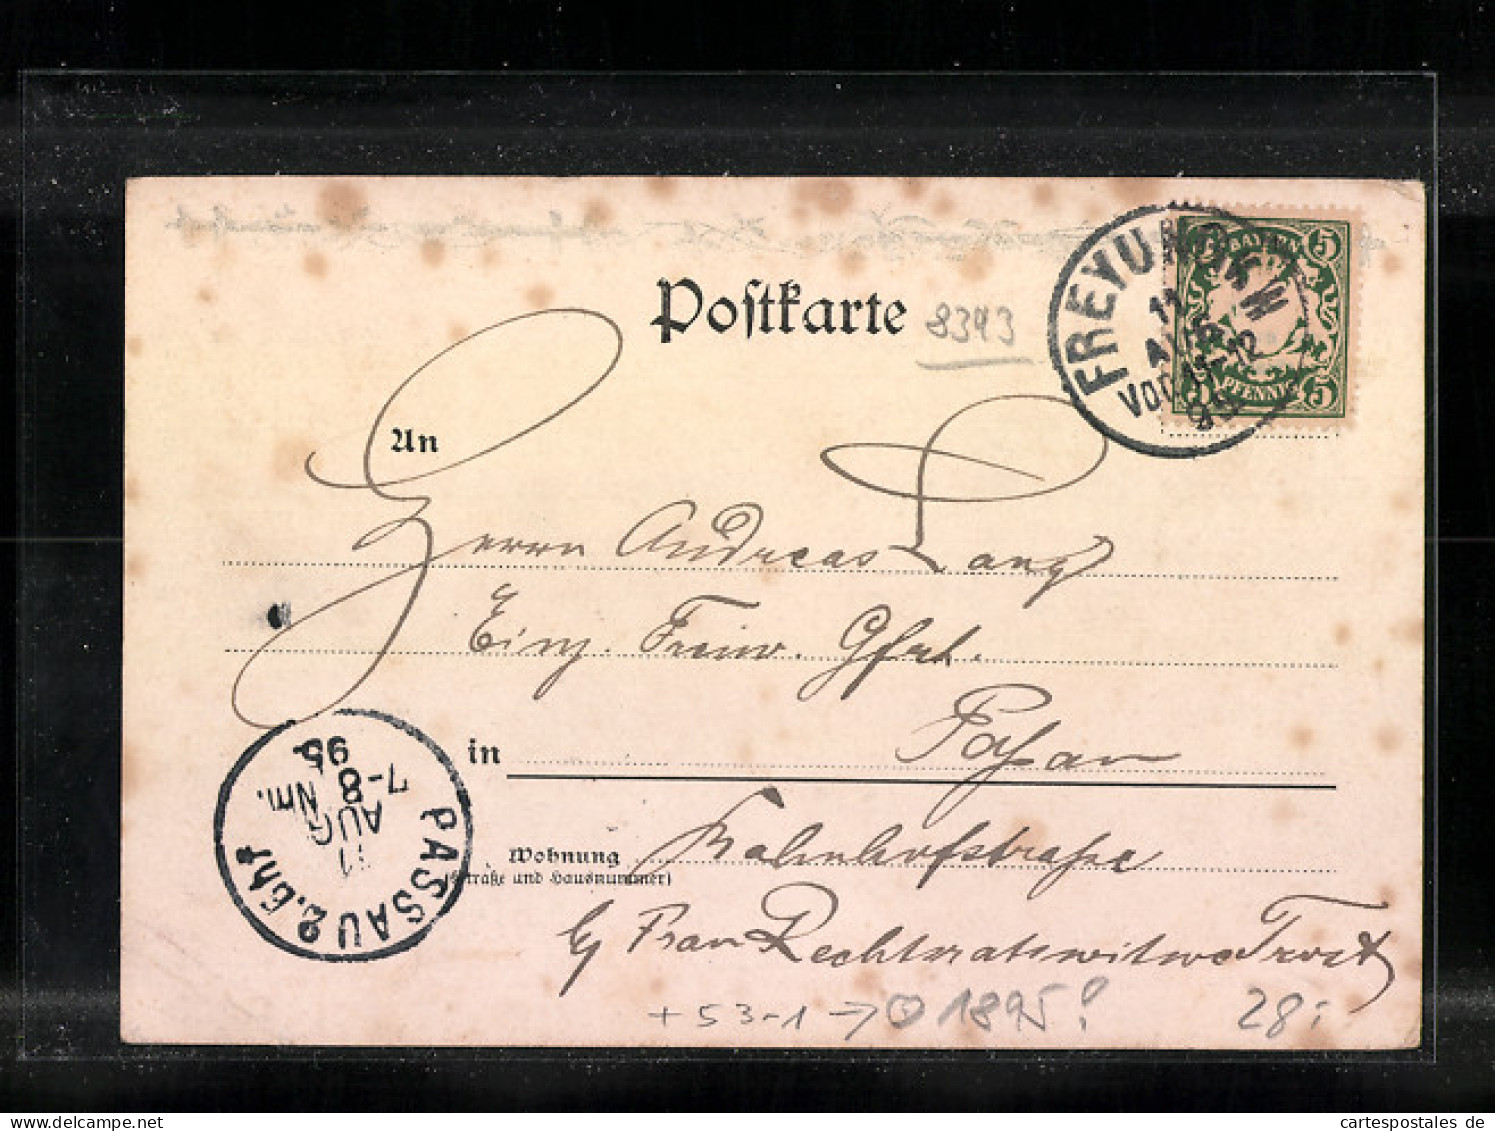 Postkarte
8343
FREYUNG v/W
11
AUG
Vor 11-12
95
BAYERN
5 5
PFENNIG
5 5
An
Herrn Andreas Lang
Einj. Freiw. Gfrt.
in Passau
Wohnung Bahnhofstrasse
(Straße und Hausnummer)
b/ Frau Rechtsratswitwe Trost
PASSAU 2. Bhf
11
AUG
Nm.
7-8
95
+ 53-1 → 1895!
28:
cartespostales.de
cartespostales.de